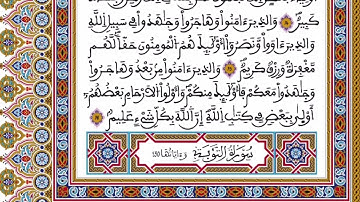 كَبِيرٌ وَالَّذِينَ ءَامَنُوا وَهَاجَرُوا وَجَٰهَدُوا فِي سَبِيلِ اللَّهِ
وَالَّذِينَ ءَاوَوا وَّنَصَرُوا أُوْلَٰٓئِكَ هُمُ الْمُؤْمِنُونَ حَقًّا لَّهُم
مَّغْفِرَةٌ وَرِزْقٌ كَرِيمٌ وَالَّذِينَ ءَامَنُوا مِنۢ بَعْدُ وَهَاجَرُوا
وَجَٰهَدُوا مَعَكُمْ فَأُوْلَٰٓئِكَ مِنكُمْ وَأُوْلُوا الْأَرْحَامِ بَعْضُهُمْ
أَوْلَىٰ بِبَعْضٍ فِي كِتَٰبِ اللَّهِ إِنَّ اللَّهَ بِكُلِّ شَيْءٍ عَلِيمٌ
سُورَةُ التَّوْبَةِ